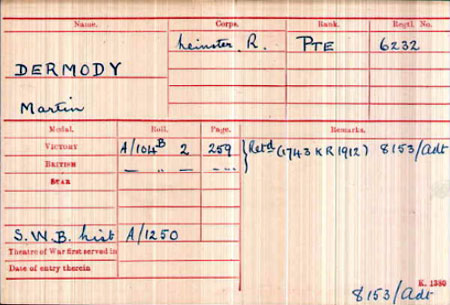 Name. Corps. Rank. Regtl. No.
Leinster. R. PTE 6232
DERMODY
Martin
Medal. Roll. Page. Remarks.
VICTORY A/104B 2 259 } Retd (1743 KR 1912) 8153/Adt
BRITISH — „ — —
STAR
S.W.B. List A/1250
Theatre of War first served in
Date of entry therein
K. 1380
8153/Adt